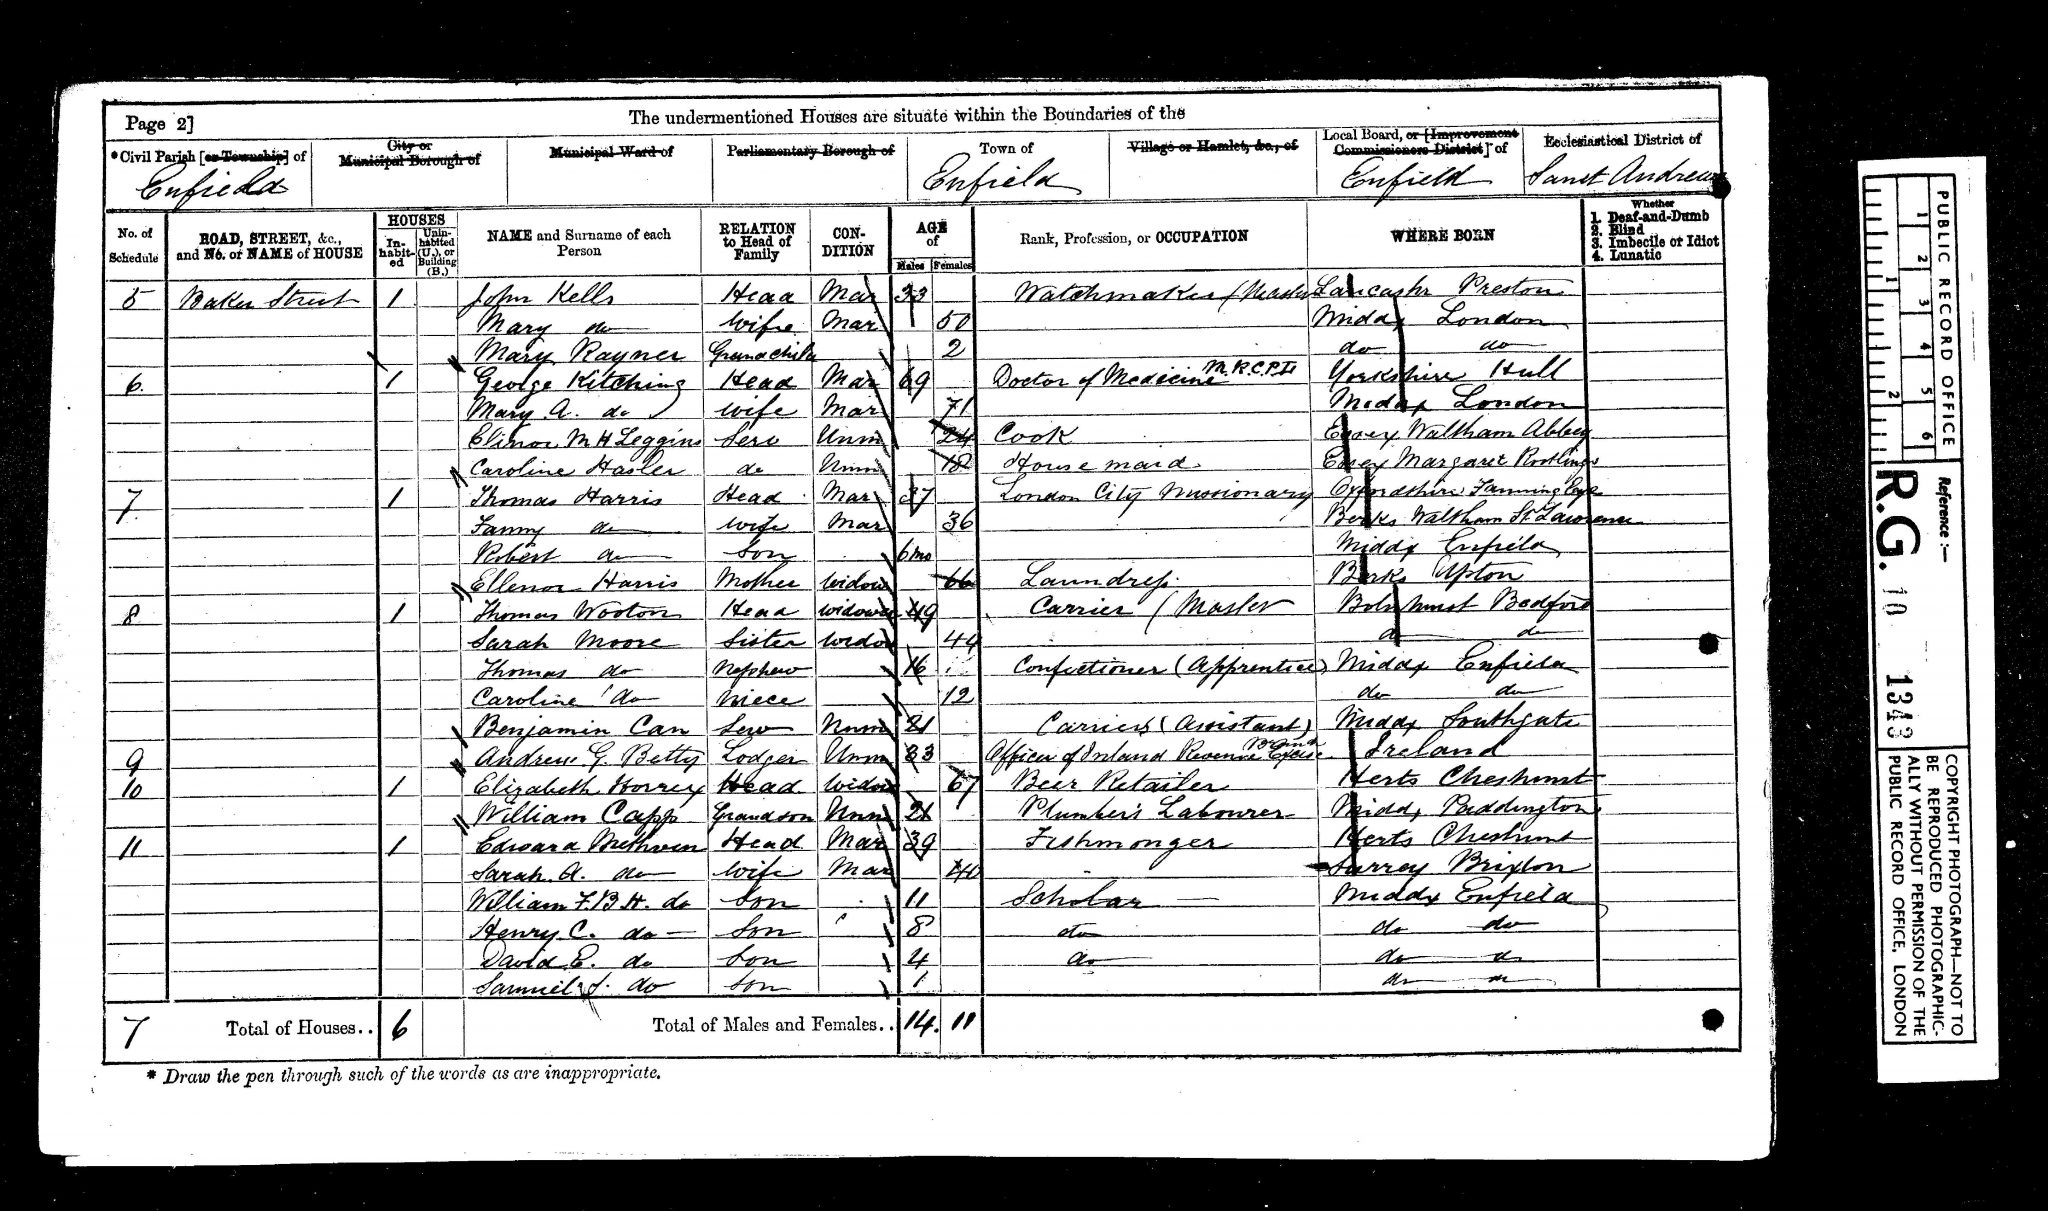 The undermentioned Houses are situate within the Boundaries of the
Page 2]
*Civil Parish [or Township] of
City or
Municipal Borough of
Municipal Ward of
Parliamentary Borough of
Town of
Village or Hamlet, &c., of
Local Board, or [Improvement
Commissioners District] of
Ecclesiastical District of
Enfield Enfield Enfield Sanct Andrews
No. of
Schedule
ROAD, STREET, &c.,
and No. or NAME of HOUSE
HOUSES
In-
habit-
ed
Unin-
habited
(U.), or
Building
(B.)
NAME and Surname of each
Person
RELATION
to Head of
Family
CON-
DITION
AGE
of
Males Females
Rank, Profession, or OCCUPATION
WHERE BORN
Whether
1. Deaf-and-Dumb
2. Blind
3. Imbecile or Idiot
4. Lunatic
5 Baker Street 1 John Kells Head Mar 33 Watchmaker (Master Lancashr Preston
Mary do Wife Mar 50 Middx London
Mary Rayner Grandchild 2 do do
6. 1 George Kitching Head Mar 69 Doctor of Medicine Yorkshire Hull
Mary A. do Wife Mar 71 Middx London
Elinor M H Leggins Serv Unm 24 Cook Essex Waltham Abbey
Caroline Hasler do Unm 18 House maid Essex Margaret
7. 1 Thomas Harris Head Mar 37 London City Missionary Oxfordshire
Fanny do Wife Mar 36 Berks Waltham St Lawrence
Robert do Son 6 mo Middx Enfield
Ellenor Harris Mother Widow 66 Laundress Berks Upton
8. 1 Thomas Wooton Head Widower 49 Carrier (Master Bolnhurst Bedford
Sarah Moore Sister Widow 44 do do
Thomas do Nephew 16 Confectioner (Apprentice) Middx Enfield
Caroline do Niece 12 do do
Benjamin Can Serv Unm 21 Carriers (Assistant) Middx Southgate
9 Andrew G. Betty Lodger Unm 33 Officer of Inland Revenue Excise Ireland
10 1 Elizabeth Horrex Head Widow 67 Beer Retailer Herts Cheshunt
William Capp Grandson Unm 21 Plumber's Labourer Middx Paddington
11 1 Edward Head Mar 39 Fishmonger Herts Cheshunt
Sarah A. do Wife Mar 40 Surrey Brixton
William F.B.H. do Son 11 Scholar Middx Enfield
Henry C. do Son 8 do do do
David E. do Son 4 do do do
Samuel J. do Son 1 do do
7 Total of Houses.. 6 Total of Males and Females.. 14. 11
* Draw the pen through such of the words as are inappropriate.
PUBLIC RECORD OFFICE
1 2 3 4 5 6
1 2
Reference:—
R.G. 10 1343
COPYRIGHT PHOTOGRAPH—NOT TO
BE REPRODUCED PHOTOGRAPHIC-
ALLY WITHOUT PERMISSION OF THE
PUBLIC RECORD OFFICE, LONDON